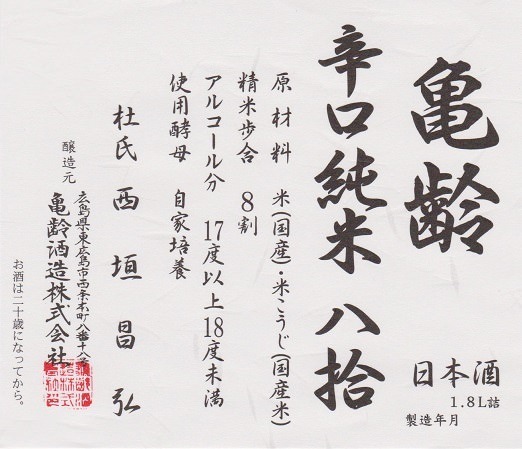 亀齢
辛口純米 八拾
日本酒
1.8L詰
製造年月
原材料 米(国産)・米こうじ(国産米)
精米歩合 8割
アルコール分 17度以上18度未満
使用酵母 自家培養
杜氏 西垣昌弘
醸造元
広島県東広島市西条本町八番十八号
亀齢酒造株式会社
お酒は二十歳になってから。